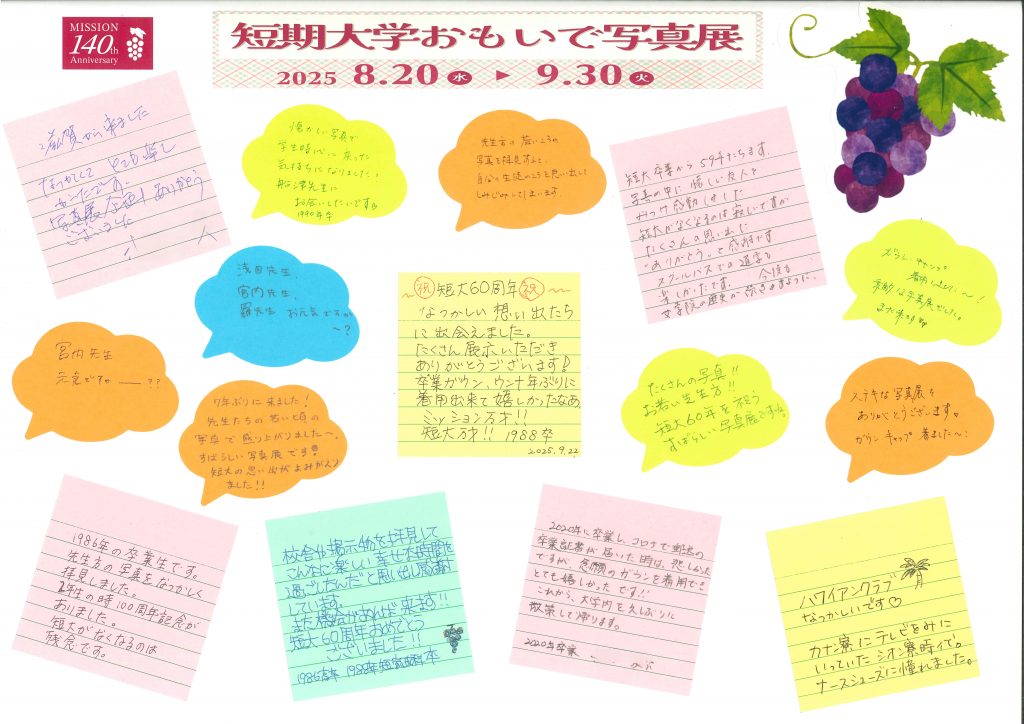 MISSION
140th
Anniversary
短期大学おもいで写真展
2025 8.20 水 ▶ 9.30 火
滋賀から来ました
なつかしくて とても楽し
かったです。
写真展
ありがとう
ございました
懐かしい写真で
学生時代に戻った
気持ちになりました!
船津先生に
お会いしたいです
1990年卒
先生方の若いころの
写真を拝見すると、
自分の生徒のころを思い出し
しみじみしてしまいます。
短大卒業から59年たちます。
写真の中に懐しい友人を
みつけ感動しました
短大がなくなるのは寂しいですが
たくさんの思い出に
"ありがとう"と感謝です
スクールバスでの通学も
楽しかったです。 今後も
女学院の歴史が続きますように、
浅田先生、
宮内先生、
羅先生 お元気ですか
〜?
㊗短大60周年㊗
なつかしい想い出たち
に出会えました。
たくさん展示いただき
ありがとうございます!
卒業ガウン、ウン十年ぶりに
着用出来て嬉しかったなあ。
ミッション万才!!
短大万才!! 1988卒
2025.9.22
ガウン、キャップ
素敵な写真展でした。
また来ます
宮内先生
元気ですか ――??
7年ぶりに来ました!
先生たちの若い頃の
写真で盛り上がりました〜。
すばらしい写真展です!
短大の思い出がよみがえり
ました!!
たくさんの写真!!
お若い先生方!!
短大60年を祝う
すばらしい写真展ですね。
ステキな写真展を
ありがとうございます。
ガウン キャップ 着ました〜!
1986年の卒業生です。
先生方の写真をなつかしく
拝見しました。
2年生の時100周年記念が
ありました。
短大がなくなるのは
残念です。
校舎や掲示物を拝見して
こんなに楽しい幸せな時間を
過ごしたんだと思い出し感謝
しています。
また機会があれば来ます!!
短大60周年おめでとう
ございました!!
2020年に卒業し、コロナで郵送の
卒業証書が届いた時は、悲しかった
ですが、念願のガウンを着用でき
とても嬉しかったです!!
これから、大学内を久しぶりに
散策して帰ります。
2020年卒業
ハワイアンクラブ
なつかしいです♡
カナン寮にテレビをみに
いっていた シオン寮時代。
ナースシューズに憧れました。